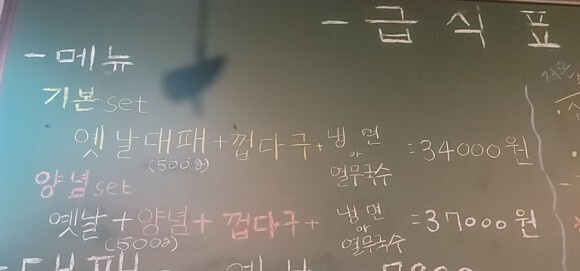 - 급식표
- 메뉴
기본 set
옛날대패 + 껍다구 + 냉면 or 열무국수 = 34000원
(500g)
양념 set
옛날 + 양념 + 껍다구 + 냉면 or 열무국수 = 37000원
(500g)